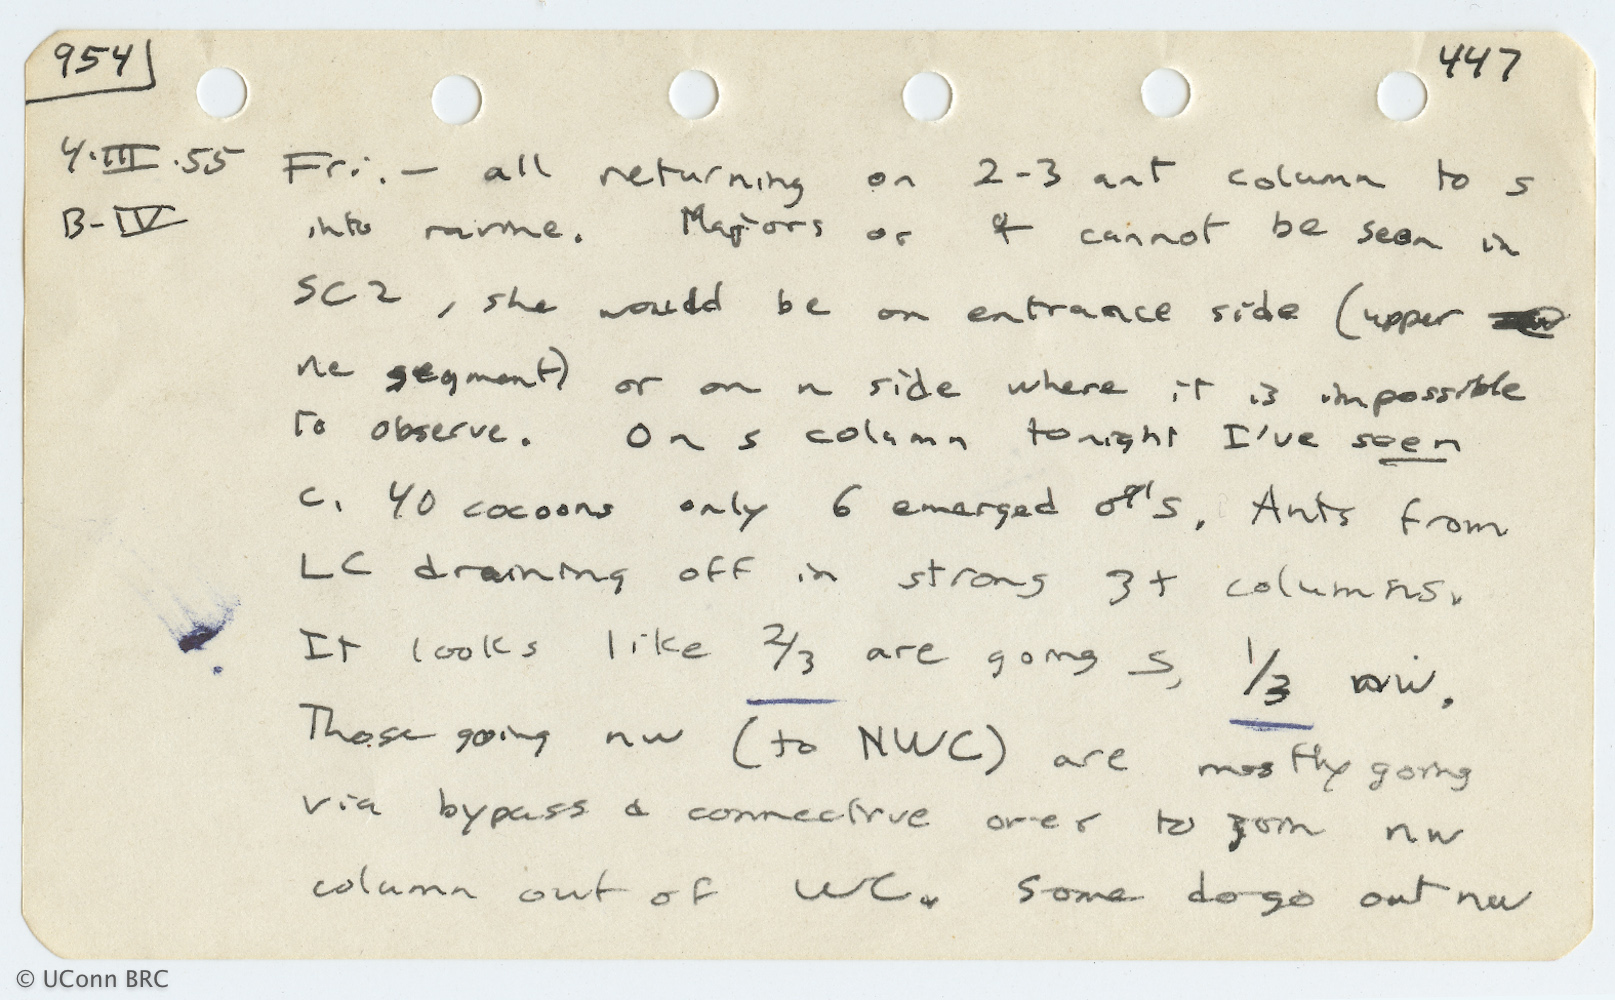 954 447
4·III·55 Fri. – all returning on 2-3 ant column to s
B-IV into ravine. Majors or ♀ cannot be seen in
SC2, she would be on entrance side (upper
ne segment) or on n side where it is impossible
to observe. On s column tonight I've seen
c. 40 cocoons only 6 emerged ♂'s. Ants from
LC draining off in strong 3+ columns.
It looks like 2/3 are going s, 1/3 nw.
Those going nw (to NWC) are mostly going
via bypass & connective over to join nw
column out of WC. Some do go out nw
© UConn BRC